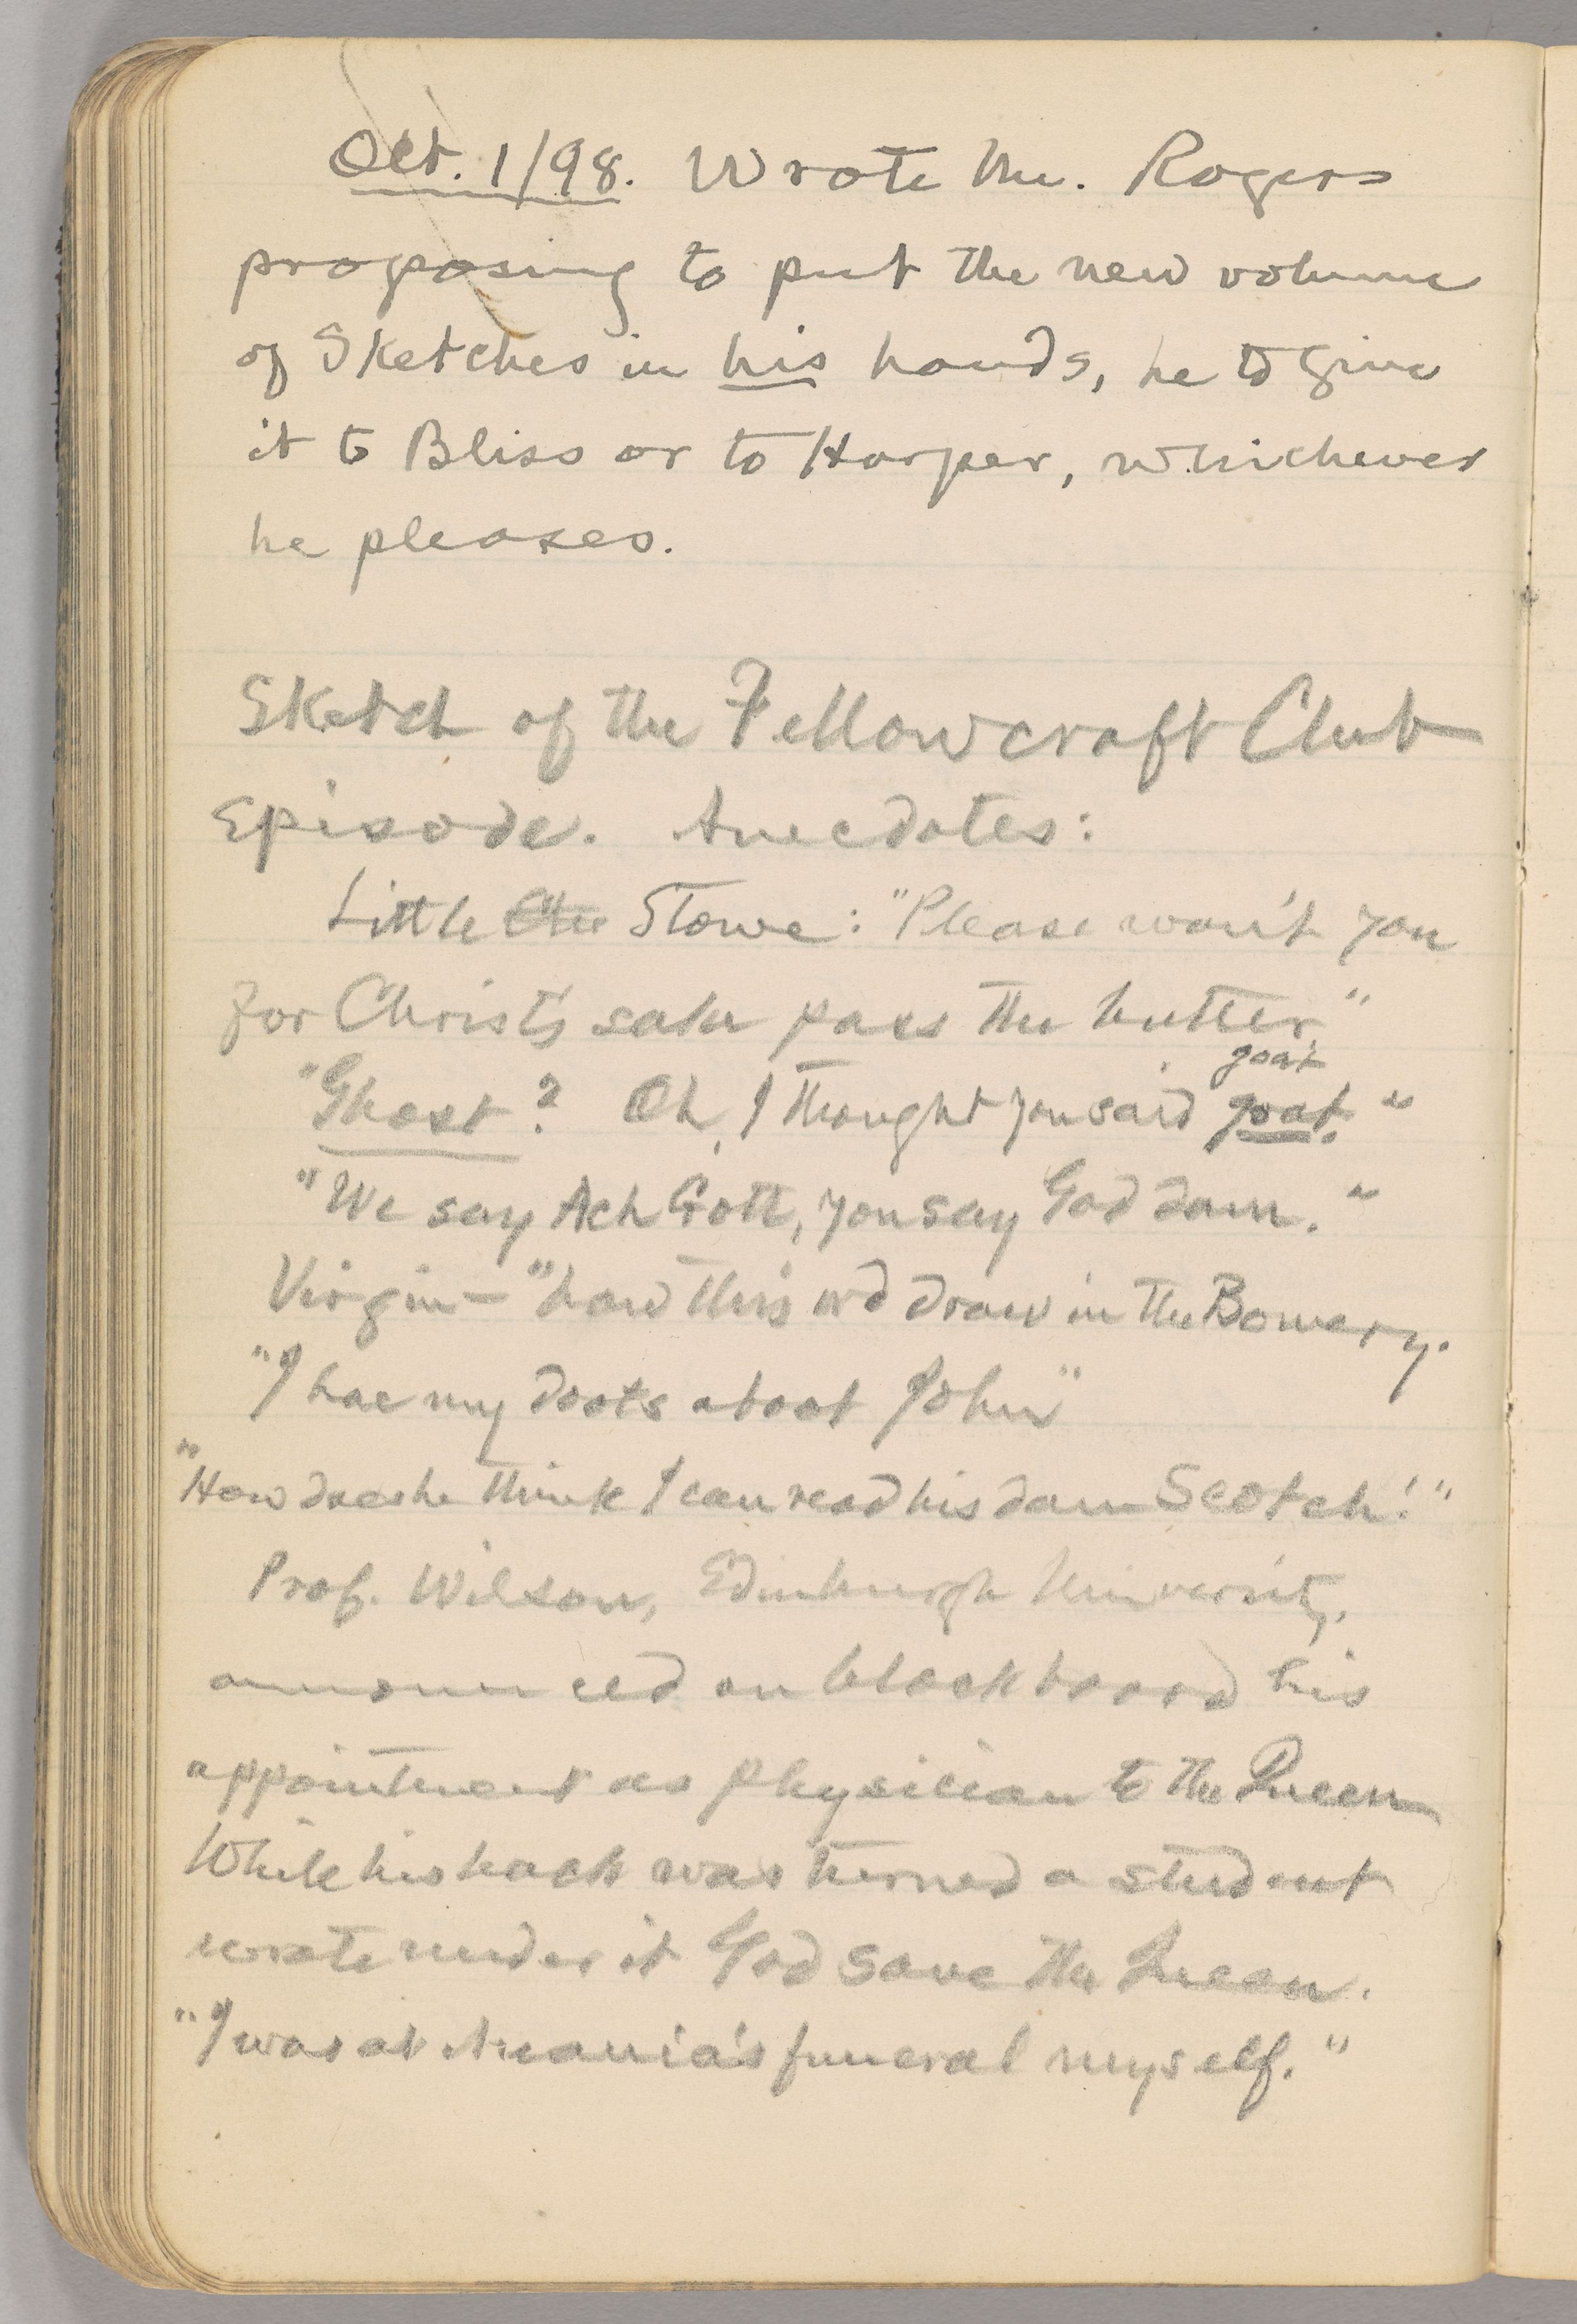 Oct. 1/98. Wrote Mr. Rogers
proposing to put the new volume
of Sketches in his hands, he to give
it to Bliss or to Harper, whichever
he pleases.
Sketch of the Fellowcraft Club
Episode. Anecdotes:
Little Stowe: "Please won't you
for Christ's sake pass the butter"
goat
"Ghost? Oh, I thought you said goat."
"We say Ach Gott, you say God dam."
Virgin – "how this wd draw in the Bowery.
"I hae my doots aboot John"
"How does he think I can read his dam Scotch!"
Prof. Wilson, Edinburgh University,
announced on blackboard his
appointment as physician to the Queen
While his back was turned a student
wrote under it God save the Queen.
"I was at Anania's funeral myself."